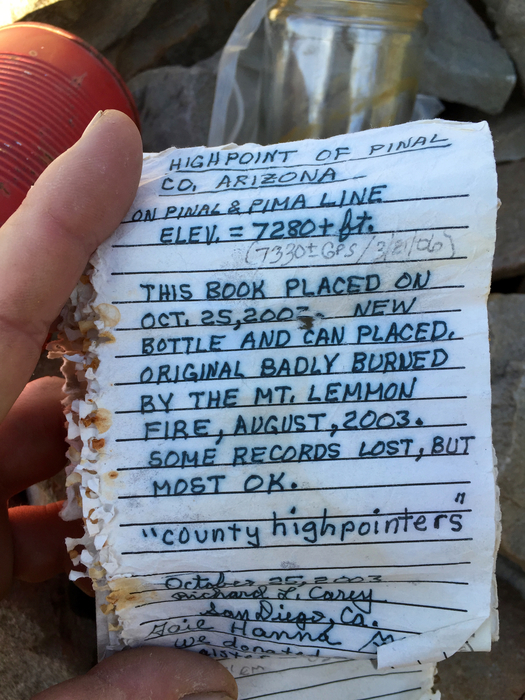 HIGHPOINT OF PINAL
CO. ARIZONA
ON PINAL & PIMA LINE
ELEV. = 7280+ ft.
(7330± GPS / 3/21/06)
THIS BOOK PLACED ON
OCT. 25, 2003. NEW
BOTTLE AND CAN PLACED.
ORIGINAL BADLY BURNED
BY THE MT. LEMMON
FIRE, AUGUST, 2003.
SOME RECORDS LOST, BUT
MOST OK.
"county highpointers"
October 25, 2003
Richard L. Carey
San Diego, Ca.
Hanna
we donated